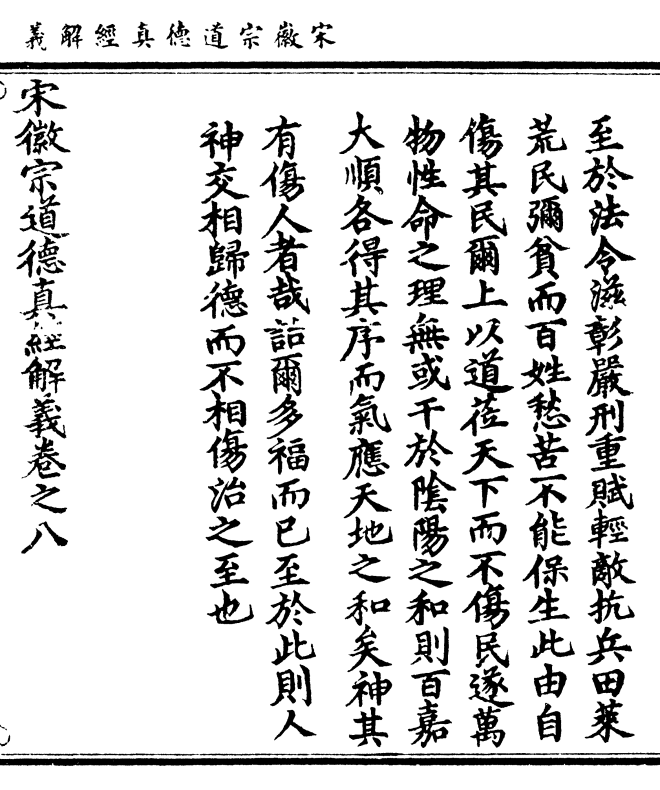 宋徽宗道德真經解義
至於法令滋彰嚴刑重賦輕敵抗兵田萊
荒民彌貧而百姓愁苦不能保生此由自
傷其民爾上以道莅天下而不傷民遂萬
物性命之理無或干於陰陽之和則百嘉
大順各得其序而氣應天地之和矣神其
有傷人者哉詒爾多福而已至於此則人
神交相歸德而不相傷治之至也
宋徽宗道德真經解義卷之八